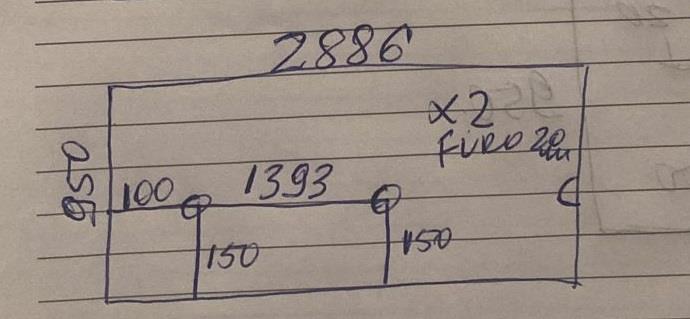 2886
x2
FURO 20
950
100 1393
150 150